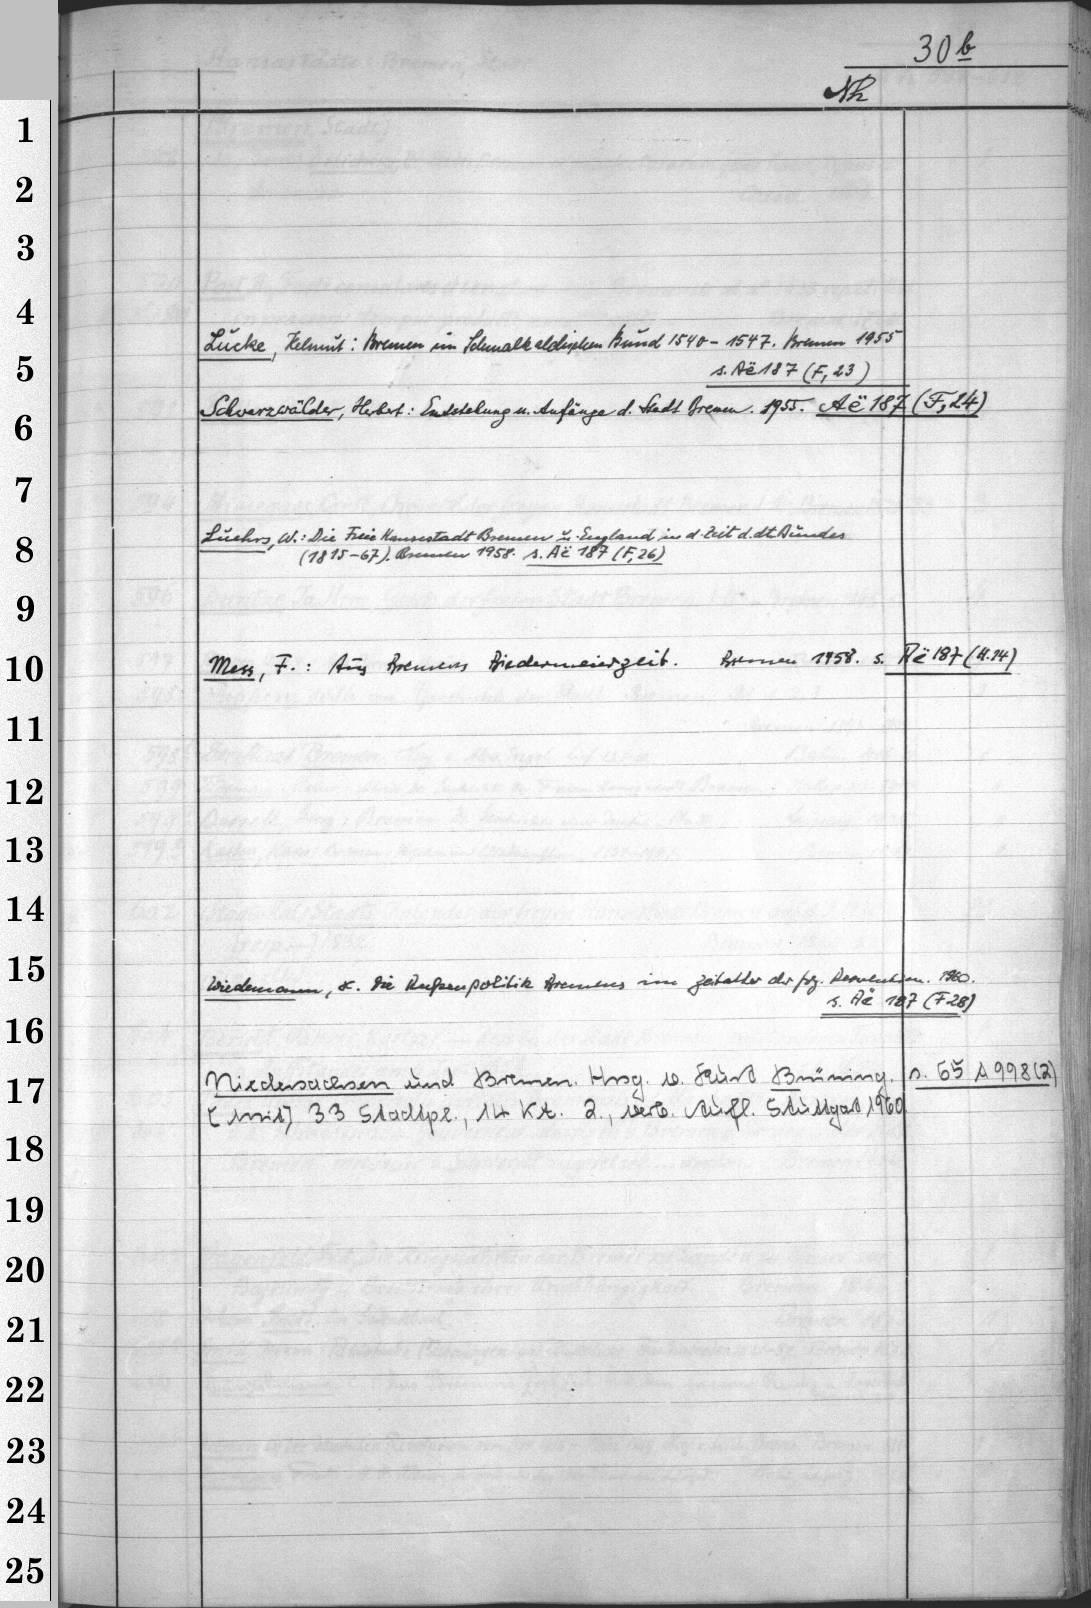 30b
Nh
1
2
3
4
Lücke, Helmut: Bremen im Schmalkaldischen Bund 1540-1547. Bremen 1955
5
s. Aë 187 (F, 23)
Schwarzwälder, Herbert: Entstehung u. Anfänge d. Stadt Bremen. 1955. Aë 187 (F, 24)
6
7
Luehrs, W.: Die Freie Hansestadt Bremen u. England in d. Zeit d. dt. Bundes
8
(1815-67). Bremen 1958. s. Aë 187 (F, 26)
9
10
Mess, F.: Aus Bremens Biedermeierzeit. Bremen 1958. s. Aë 187 (H.14)
11
12
13
14
15
Wiedemann, K. Die Außenpolitik Bremens im Zeitalter der frz. Revolution. 1960.
s. Aë 187 (F 28)
16
Niedersachsen und Bremen. Hrsg. v. Kurt Brüning. s. 65 A 998 (2)
17
[mit] 33 Stadtpl., 14 Kt. 2., verb. Aufl. Stuttgart 1960
18
19
20
21
22
23
24
25